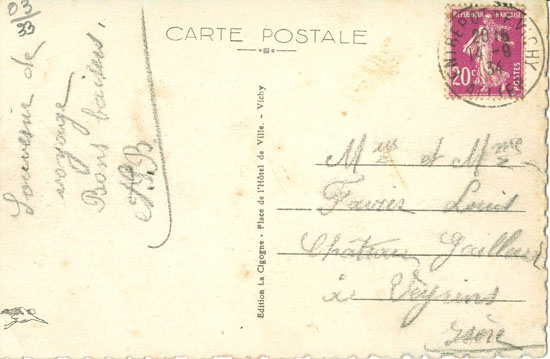 03/33
CARTE POSTALE
Souvenir de
voyage
Bons baisers
Edition La Cigogne - Place de l'Hôtel de Ville. - Vichy
REPUBLIQUE FRANÇAISE
20c
POSTES
Mr et Mme
Louis
Château Gaillard
à Veyrins
Isère